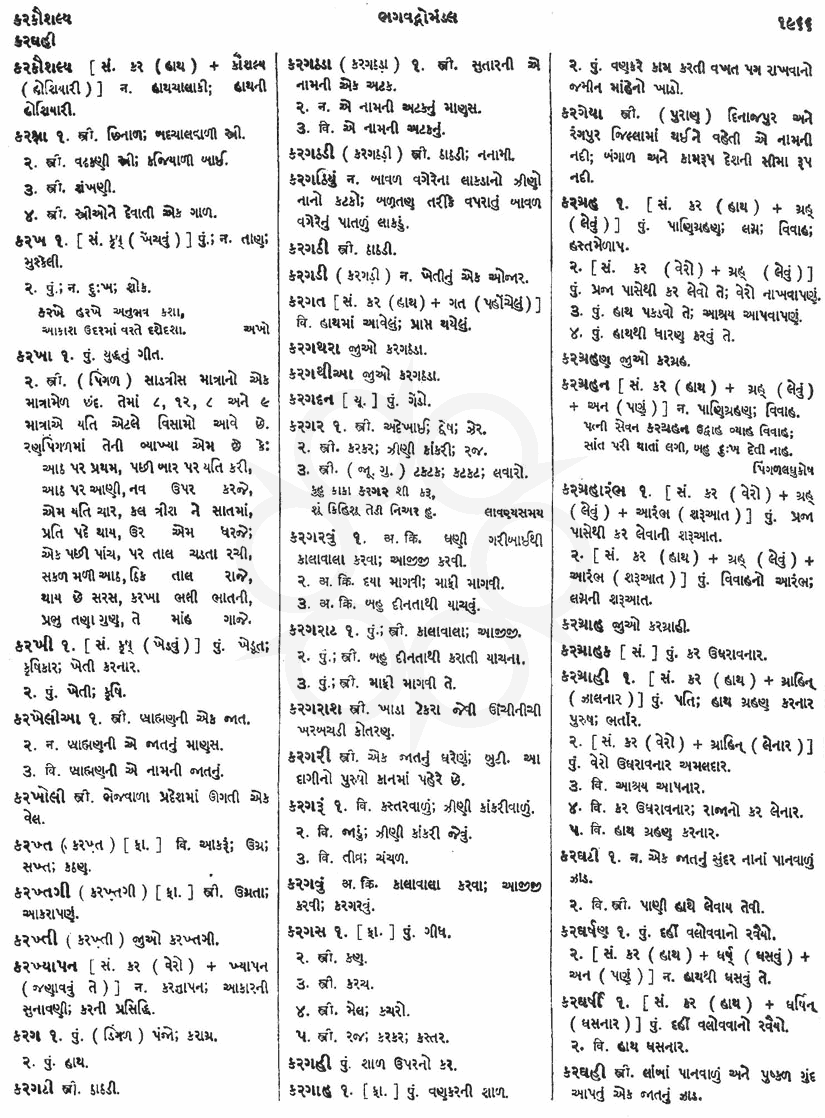 કરકૌશલ્ય
ભગવદ્ગોમંડલ
૧૯૬૬
કરઘહી
કરકૌશલ્ય [ સં. કર ( હાથ ) + કૌશલ્ય
( હોશિયારી ) ] ન. હાથચાલાકી; હાથની
હોશિયારી.
કરક્ષા ૧. સ્ત્રી. છિનાળ; બદચાલવાળી સ્ત્રી.
૨. સ્ત્રી. વઢકણી સ્ત્રી; કજિયાળી બાઈ.
૩. સ્ત્રી. શંખણી.
૪. સ્ત્રી. સ્ત્રીઓને દેવાતી એક ગાળ.
કરખ ૧. [ સં. કૃષ્ ( ખેંચવું ) ] પું.; ન. તાણ;
મુશ્કેલી.
૨. પું.; ન. દુઃખ; શોક.
કરખે હરખે અનુભવ કશા,
આકાશ ઉદરમાં વરતે દશેદશા. અખો
કરખા ૧. પું. યુદ્ધનું ગીત.
૨. સ્ત્રી. ( પિંગળ ) સાડત્રીસ માત્રાનો એક
માત્રામેળ છંદ. તેમાં ૮, ૧૨, ૮ અને ૯
માત્રાએ યતિ એટલે વિસામો આવે છે.
રણપિંગળમાં તેની વ્યાખ્યા એમ છે કે:
આઠ પર પ્રથમ, પછી બાર પર યતિ કરી,
આઠ પર આણી, નવ ઉપર કરજે,
એમ યતિ ચાર, કલ ત્રીશ ને સાતમાં,
પ્રતિ પદે થાય, ઉર એમ ધરજે;
એક પછી પાંચ, પર તાલ ચડતા રચી,
સકળ મળી આઠ, ઠિક તાલ રાજે,
થાય છે સરસ, કરખા ભલી ભાતની,
પ્રભુ તણા ગુણ, તે માંહ ગાજે.
કરખી ૧. [ સં. કૃષ્ ( ખેડવું ) ] પું. ખેડૂત;
કૃષિકાર; ખેતી કરનાર.
૨. પું. ખેતી; કૃષિ.
કરખેલીઆ ૧. સ્ત્રી. બ્રાહ્મણની એક જાત.
૨. ન. બ્રાહ્મણની એ જાતનું માણસ.
૩. વિ. બ્રાહ્મણની એ નામની જાતનું.
કરખોલી સ્ત્રી. ભેજવાળા પ્રદેશમાં ઊગતી એક
વેલ.
કરખ્ત ( કરખ્ત ) [ ફા. ] વિ. આકરૂં; ઉગ્ર;
સખ્ત; કઠણ.
કરખ્તગી ( કરખ્તગી ) [ ફા. ] સ્ત્રી. ઉગ્રતા;
આકરાપણું.
કરખ્તી ( કરખ્તી ) જુઓ કરખ્તગી.
કરખ્યાપન [ સં. કર ( વેરો ) + ખ્યાપન
( જણાવવું તે ) ] ન. કરજ્ઞાપન; આકારની
સુનાવણી; કરની પ્રસિદ્ધિ.
કરગ ૧. પું. ( ડિંગળ ) પંજો; કરાગ્ર.
૨. પું. હાથ.
કરગટી સ્ત્રી. ઠાઠડી.
કરગઠડા ( કરગઠડા ) ૧. સ્ત્રી. સુતારની એ
નામની એક અટક.
૨. ન. એ નામની અટકનું માણસ.
૩. વિ. એ નામની અટકનું.
કરગઠડી ( કરગઠડી ) સ્ત્રી. ઠાઠડી; નનામી.
કરગઠિયું ન. બાવળ વગેરેના લાકડાનો ઝીણો
નાનો કટકો; બળતણ તરીકે વપરાતું બાવળ
વગેરેનું પાતળું લાકડું.
કરગઠી સ્ત્રી. ઠાઠડી.
કરગડી ( કરગડી ) ન. ખેતીનું એક ઓજાર.
કરગત [ સં. કર ( હાથ ) + ગત ( પહોંચેલું ) ]
વિ. હાથમાં આવેલું; પ્રાપ્ત થયેલું.
કરગથરા જુઓ કરગઠડા.
કરગથીઆ જુઓ કરગઠડા.
કરગદન [ યૂ. ] પું. ગેંડો.
કરગર ૧. સ્ત્રી. અદેખાઈ; દ્વેષ; ઝેર.
૨. સ્ત્રી. કરકર; ઝીણી કાંકરી; રજ.
૩. સ્ત્રી. ( જૂ. ગુ. ) ટકટક; કટકટ; લવારો.
કહુ કાકા કરગર શી કરૂ,
શં કિહિશ તેડી નિચર હુ. લાવણ્યસમય
કરગરવું ૧. અ. ક્રિ. ઘણી ગરીબાઈથી
કાલાવાલા કરવા; આજીજી કરવી.
૨. અ. ક્રિ. દયા માગવી; માફી માગવી.
૩. અ. ક્રિ. બહુ દીનતાથી યાચવું.
કરગરાટ ૧. પું.; સ્ત્રી. કાલાવાલા; આજીજી.
૨. પું.; સ્ત્રી. બહુ દીનતાથી કરાતી યાચના.
૩. પું.; સ્ત્રી. માફી માગવી તે.
કરગરાશ સ્ત્રી. ખાડા ટેકરા જેવી ઊંચીનીચી
ખરબચડી કોતરણ.
કરગરી સ્ત્રી. એક જાતનું ઘરેણું; બુટી. આ
દાગીનો પુરુષો કાનમાં પહેરે છે.
કરગરૂં ૧. વિ. કસ્તરવાળું; ઝીણી કાંકરીવાળું.
૨. વિ. જાડું; ઝીણી કાંકરી જેવું.
૩. વિ. તીવ્ર; ચંચળ.
કરગવું અ. ક્રિ. કાલાવાલા કરવા; આજીજી
કરવી; કરગરવું.
કરગસ ૧. [ ફા. ] પું. ગીધ.
૨. સ્ત્રી. કણ.
૩. સ્ત્રી. કરચ.
૪. સ્ત્રી. મેલ; કચરો.
૫. સ્ત્રી. રજ; કરકર; કસ્તર.
કરગહી પું. શાળ ઉપરનો કર.
કરગાહ ૧. [ ફા. ] પું. વણકરની શાળ.
૨. પું. વણકરે કામ કરતી વખત પગ રાખવાનો
જમીન માંહેનો ખાડો.
કરગેયા સ્ત્રી. ( પુરાણ ) દિનાજપુર અને
રંગપુર જિલ્લામાં થઈને વહેતી એ નામની
નદી; બંગાળ અને કામરૂપ દેશની સીમા રૂપ
નદી.
કરગ્રહ ૧. [ સં. કર ( હાથ ) + ગ્રહ્
( લેવું ) ] પું. પાણિગ્રહણ; લગ્ન; વિવાહ;
હસ્તમેળાપ.
૨. [ સં. કર ( વેરો ) + ગ્રહ્ ( લેવું ) ]
પું. પ્રજા પાસેથી કર લેવો તે; વેરો નાખવાપણું.
૩. પું. હાથ પકડવો તે; આશ્રય આપવાપણું.
૪. પું. હાથથી ધારણ કરવું તે.
કરગ્રહણ જુઓ કરગ્રહ.
કરગ્રહન [ સં. કર ( હાથ ) + ગ્રહ્ ( લેવું )
+ અન ( પણું ) ] ન. પાણિગ્રહણ; વિવાહ.
પત્ની સેવન કરગ્રહન ઉદ્વાહ વ્યાહ વિવાહ;
સાંત પરી થાતાં લગી, બહુ દુઃખ દેતી નાહ.
પિંગળલઘુકોષ
કરગ્રહારંભ ૧. [ સં. કર ( વેરો ) + ગ્રહ્
( લેવું ) + આરંભ ( શરૂઆત ) ] પું. પ્રજા
પાસેથી કર લેવાની શરૂઆત.
૨. [ સં. કર ( હાથ ) + ગ્રહ્ ( લેવું ) +
આરંભ ( શરૂઆત ) ] પું. વિવાહનો આરંભ;
લગ્નની શરૂઆત.
કરગ્રાહ જુઓ કરગ્રાહી.
કરગ્રાહક [ સં. ] પું. કર ઉઘરાવનાર.
કરગ્રાહી ૧. [ સં. કર ( હાથ ) + ગ્રાહિન્
( ઝાલનાર ) ] પું. પતિ; હાથ ગ્રહણ કરનાર
પુરુષ; ભર્તાર.
૨. [ સં. કર ( વેરો ) + ગ્રાહિન્ ( લેનાર ) ]
પું. વેરો ઉઘરાવનાર અમલદાર.
૩. વિ. આશ્રય આપનાર.
૪. વિ. કર ઉઘરાવનાર; રાજાનો કર લેનાર.
૫. વિ. હાથ ગ્રહણ કરનાર.
કરઘટી ૧. ન. એક જાતનું સુંદર નાનાં પાનવાળું
ઝાડ.
૨. વિ. સ્ત્રી. પાણી હાથે લેવાય તેવી.
કરઘર્ષણ ૧. પું. દહીં વલોવવાનો રવૈયો.
૨. [ સં. કર ( હાથ ) + ઘર્ષ્ ( ઘસવું ) +
અન ( પણું ) ] ન. હાથથી ઘસવું તે.
કરઘર્ષી ૧. [ સં. કર ( હાથ ) + ઘર્ષિન્
( ઘસનાર ) ] પું. દહીં વલોવવાનો રવૈયો.
૨. વિ. હાથ ઘસનાર.
કરઘહી સ્ત્રી. લાંબાં પાનવાળું અને પુષ્કળ ગુંદ
આપતું એક જાતનું ઝાડ.